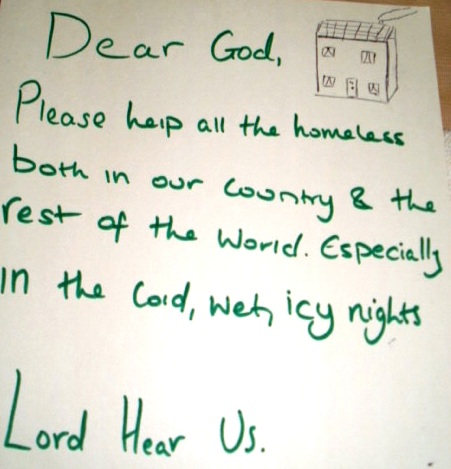 Dear God,
Please help all the homeless
both in our Country & the
rest of the World. Especially
in the Cold, wet, icy nights
Lord Hear Us.